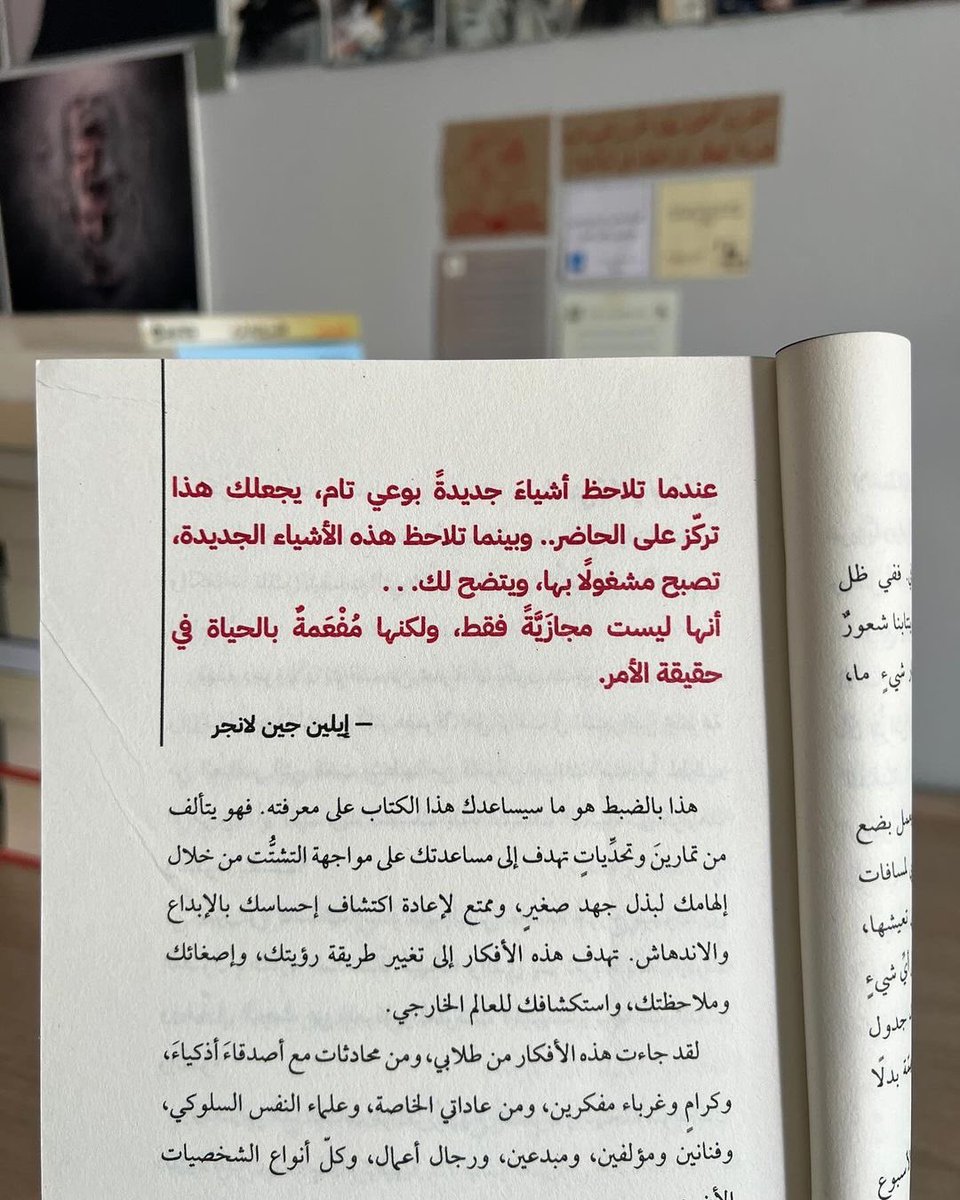 عندما تلاحظ أشياءَ جديدةً بوعي تام، يجعلك هذا
تركّز على الحاضر.. وبينما تلاحظ هذه الأشياء الجديدة،
تصبح مشغولًا بها، ويتضح لك. . .
أنها ليست مجازَيَّةً فقط، ولكنها مُفْعَمةٌ بالحياة في
حقيقة الأمر.
– إيلين جين لانجر
هذا بالضبط هو ما سيساعدك هذا الكتاب على معرفته. فهو يتألف
من تمارينَ وتحدِّياتٍ تهدف إلى مساعدتك على مواجهة التشتُّت من خلال
إلهامك لبذل جهد صغيرٍ، وممتع لإعادة اكتشاف إحساسك بالإبداع
والاندهاش. تهدف هذه الأفكار إلى تغيير طريقة رؤيتك، وإصغائك
وملاحظتك، واستكشافك للعالم الخارجي.
لقد جاءت هذه الأفكار من طلابي، ومن محادثات مع أصدقاءَ أذكياءَ،
وكرامٍ وغرباء مفكرين، ومن عاداتي الخاصة، وعلماء النفس السلوكي،
وفنانين ومؤلفين، ومبدعين، ورجال أعمال، وكلّ أنواع الشخصيات
ففي ظل
شعورٌ
شيءٍ ما،
بضع
تعيشها،
شيءٍ
جدول
بدلًا